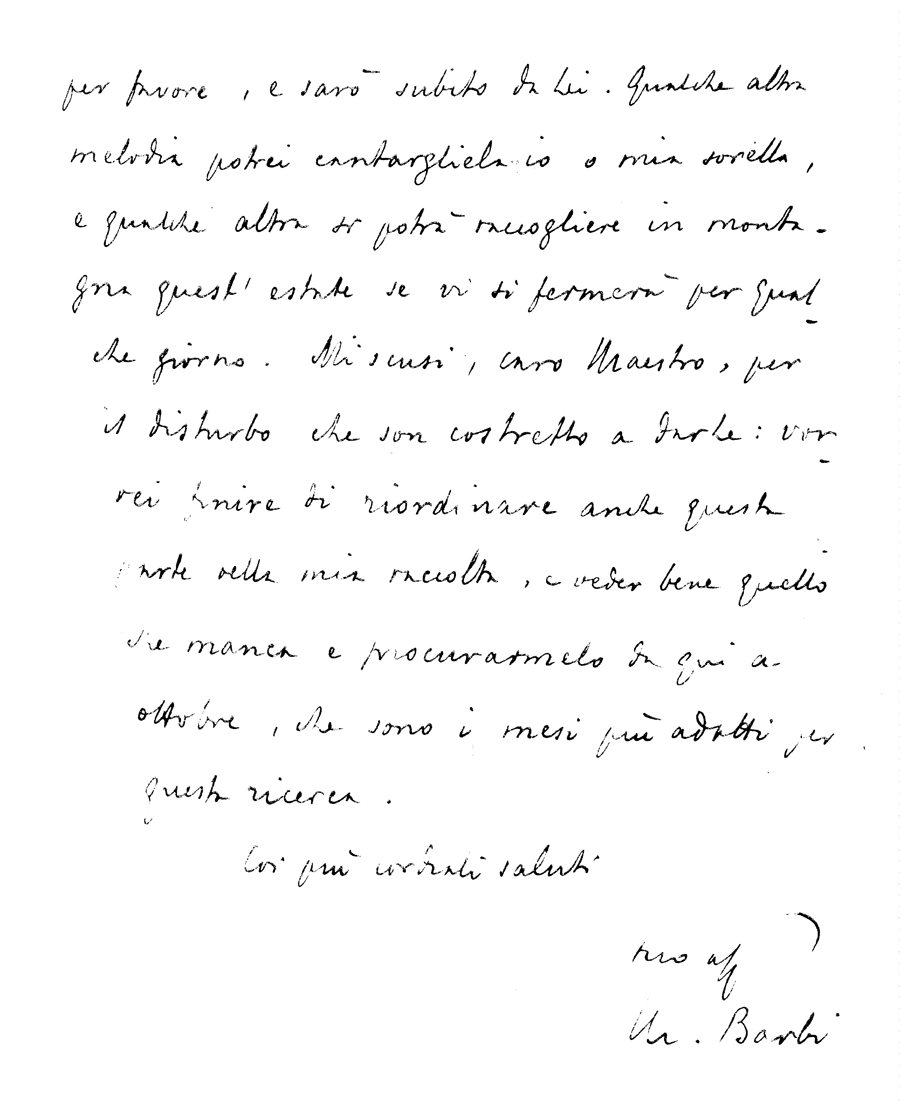 per favore, e sarò subito da Lei. Qualche altra
melodia potrei cantargliela io o mia sorella,
e qualche altra si potrà raccogliere in monta-
gna quest'estate se vi si fermerà per qual
che giorno. Mi scusi, caro Maestro, per
il disturbo che son costretto a darle: vor
rei finire di riordinare anche questa
parte della mia raccolta, e veder bene quello
che manca e procurarmelo da qui a
ottobre, che sono i mesi più adatti per
questa ricerca.
Coi più cordiali saluti
suo aff
M. Barbi